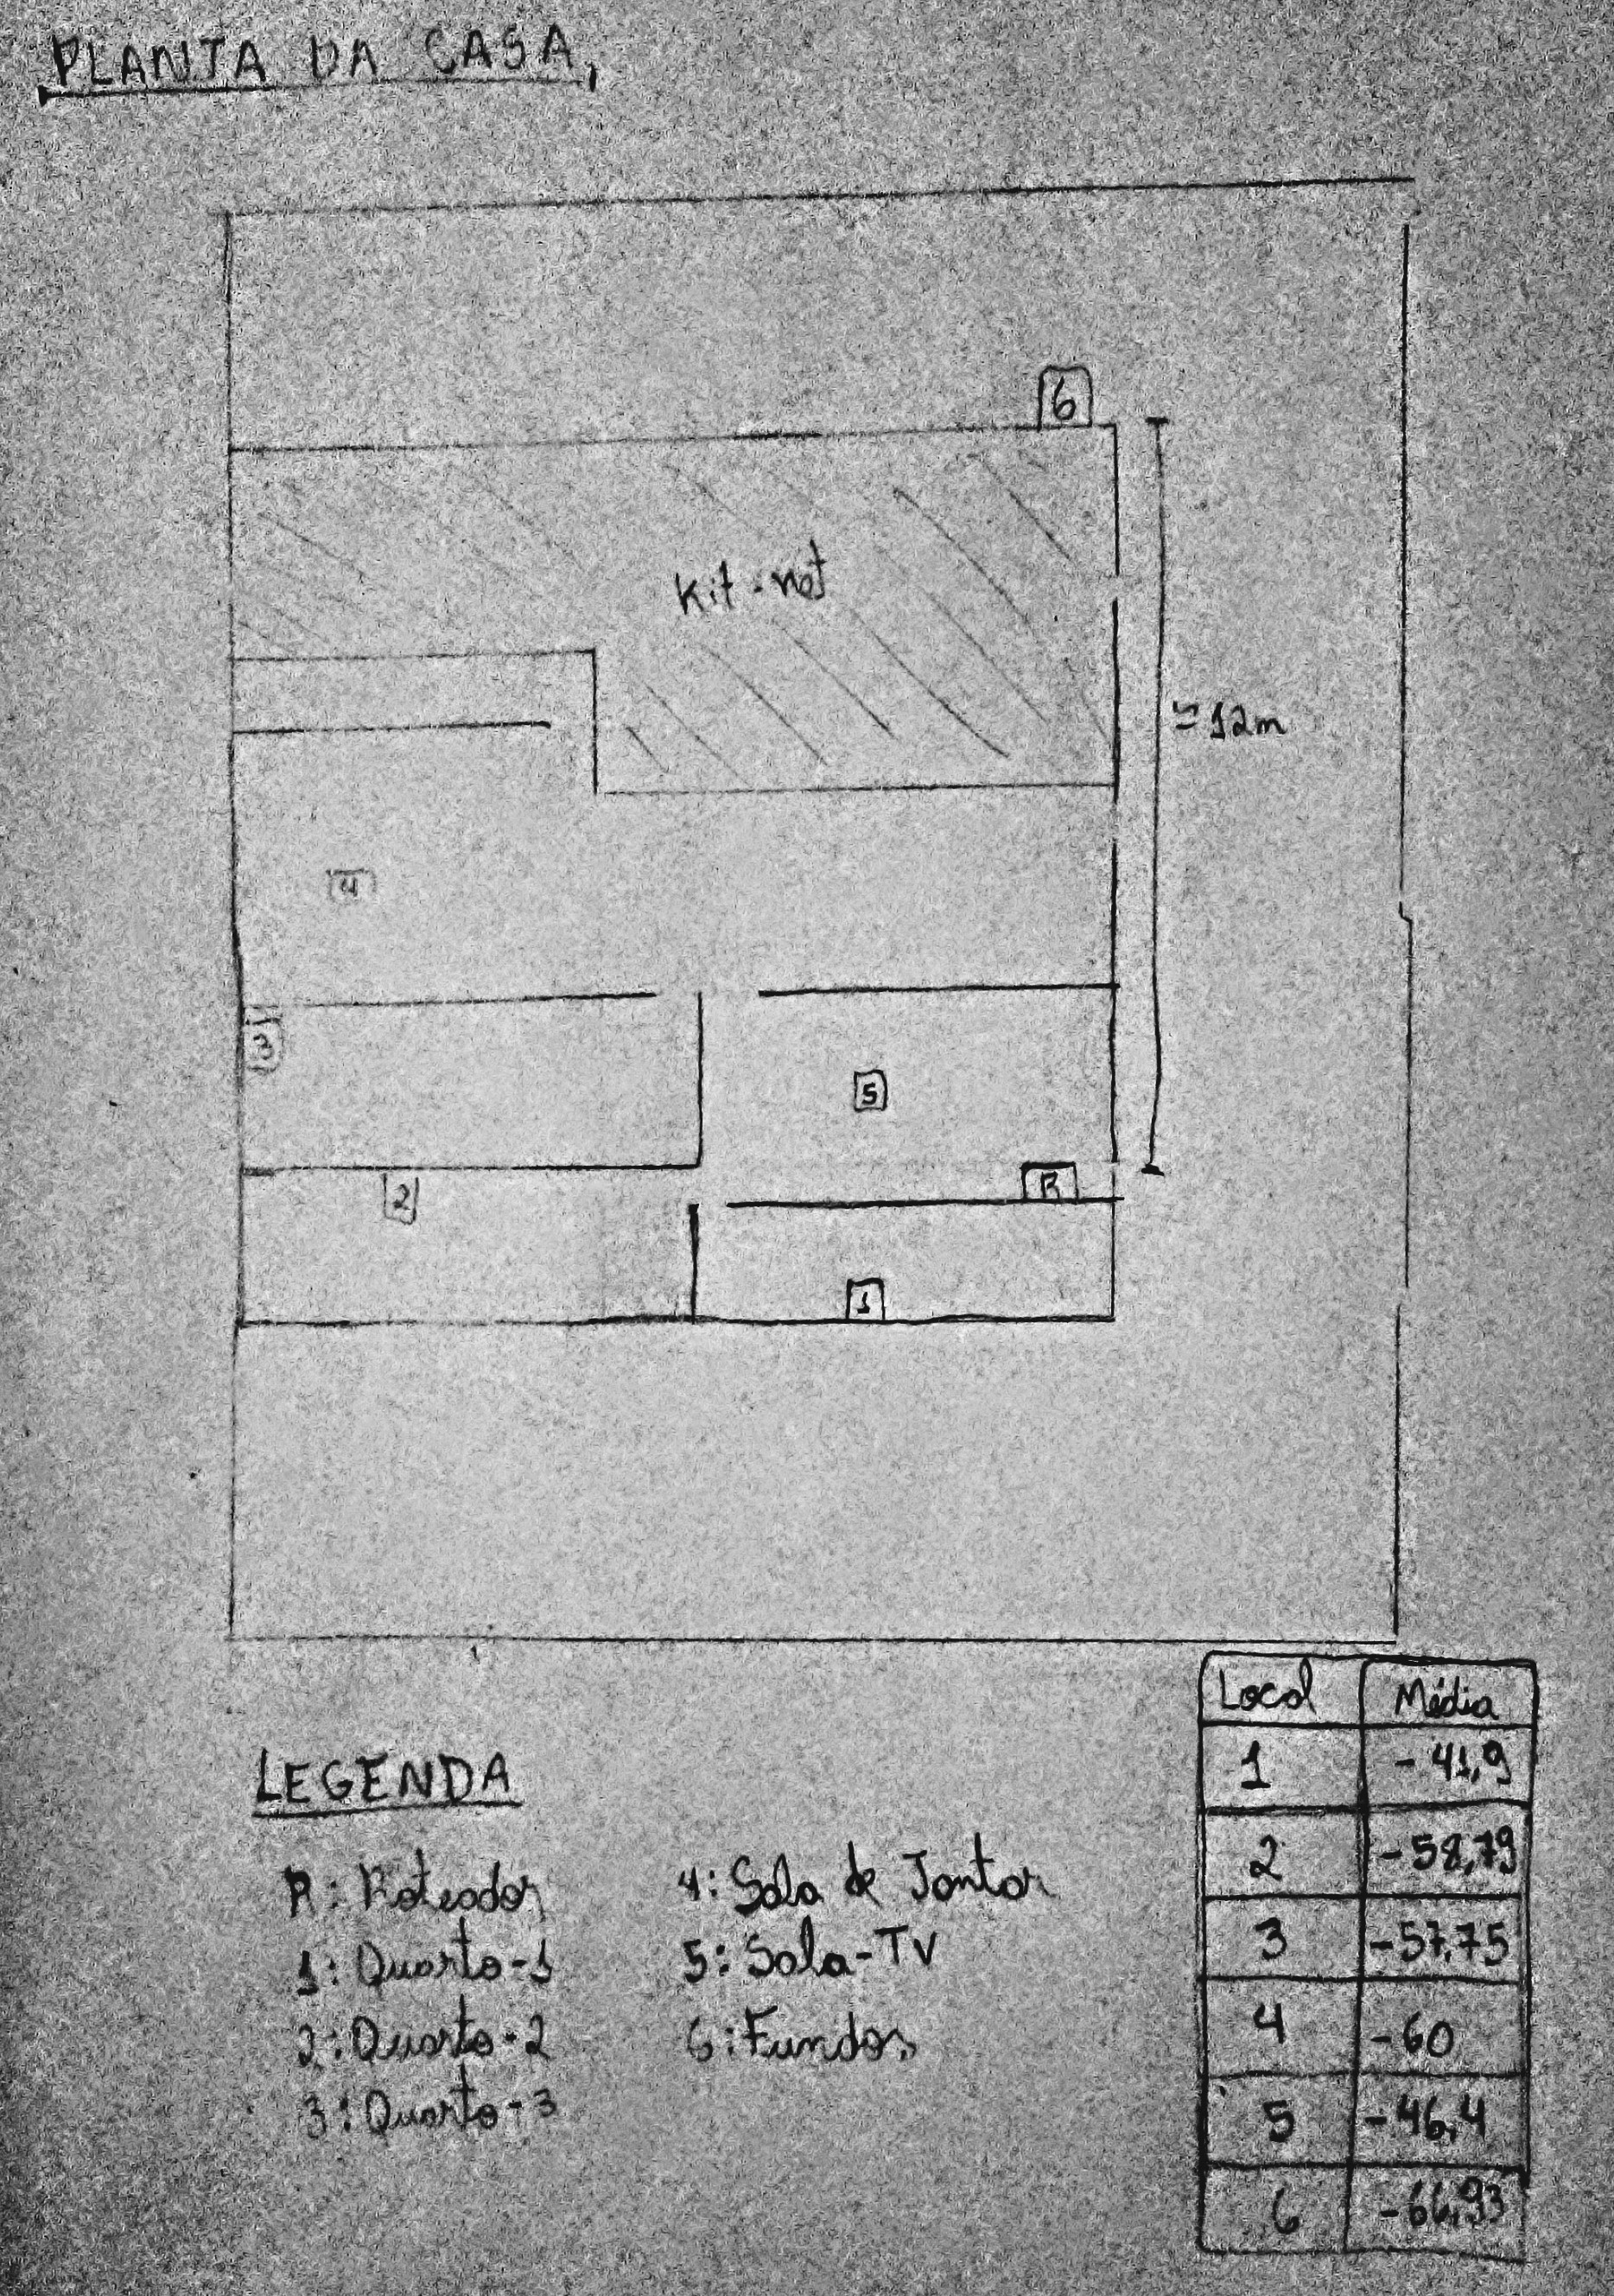 PLANTA DA CASA,
6
Kit-net
≃ 12m
4
3
5
2
R
1
LEGENDA
R: Roteador
1: Quarto-1
2: Quarto-2
3: Quarto-3
4: Sala de Jantar
5: Sala-TV
6: Fundos
Local Média
1 -41,9
2 -58,79
3 -57,75
4 -60
5 -46,4
6 -66,93